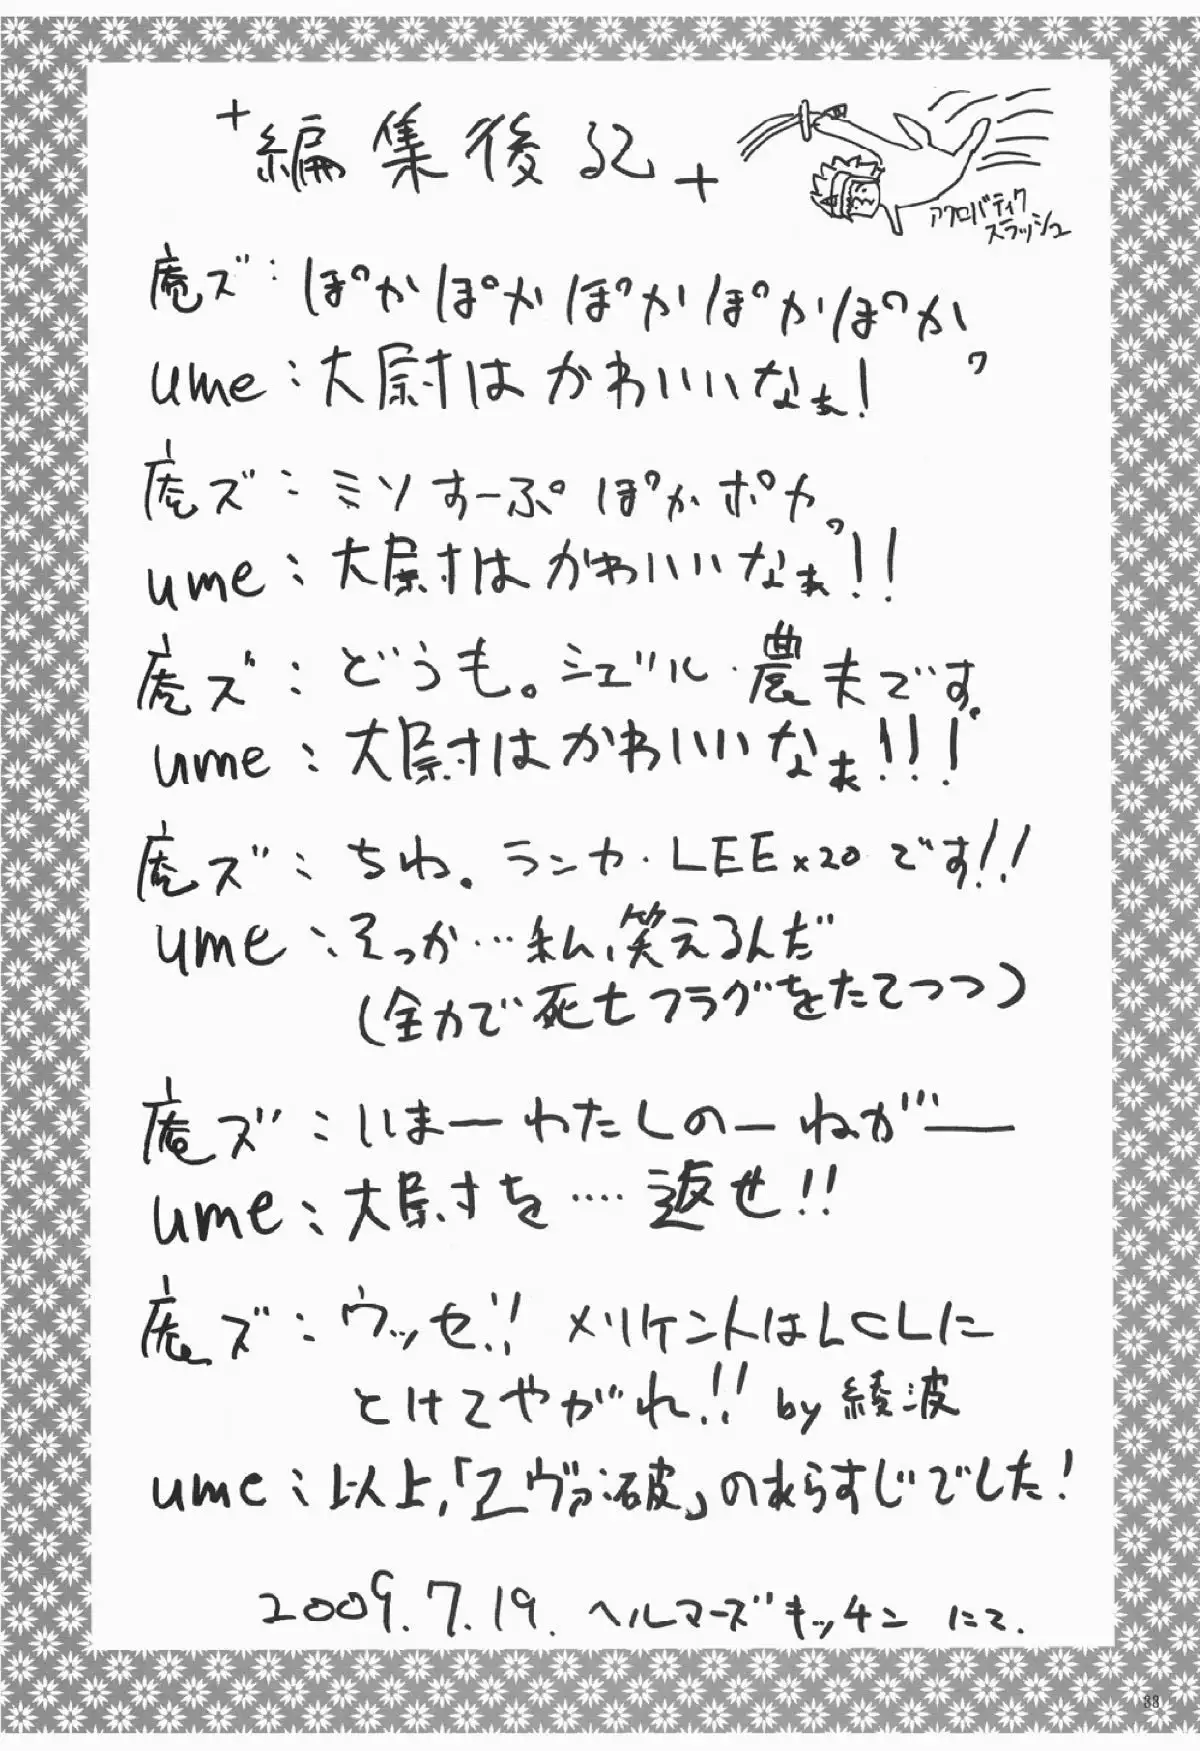 +編集後記+
アクロバティク
スラッシュ
庵ズ:ぽかぽかぽかぽかぽか。
ume:大尉はかわいいなぁ!
庵ズ:ミソすーぷぽかポカ。
ume:大尉はかわいいなぁ!!
庵ズ:どうも。シェゾル・農夫です。
ume:大尉はかわいいなぁ!!!
庵ズ:ちわ。ランカ・LEE×20です!!
ume:そっか…私、笑えるんだ
(全力で死亡フラグをたてつつ)
庵ズ:いまーわたしのーねがー
ume:大尉を‥‥返せ!!
庵ズ:ウッセ!! メリケントはLCLに
とけてやがれ!! by綾波
ume:以上、「ヱヴァ破」のあらすじでした!
2009.7.19. ヘルマーズキッチン にて.
33